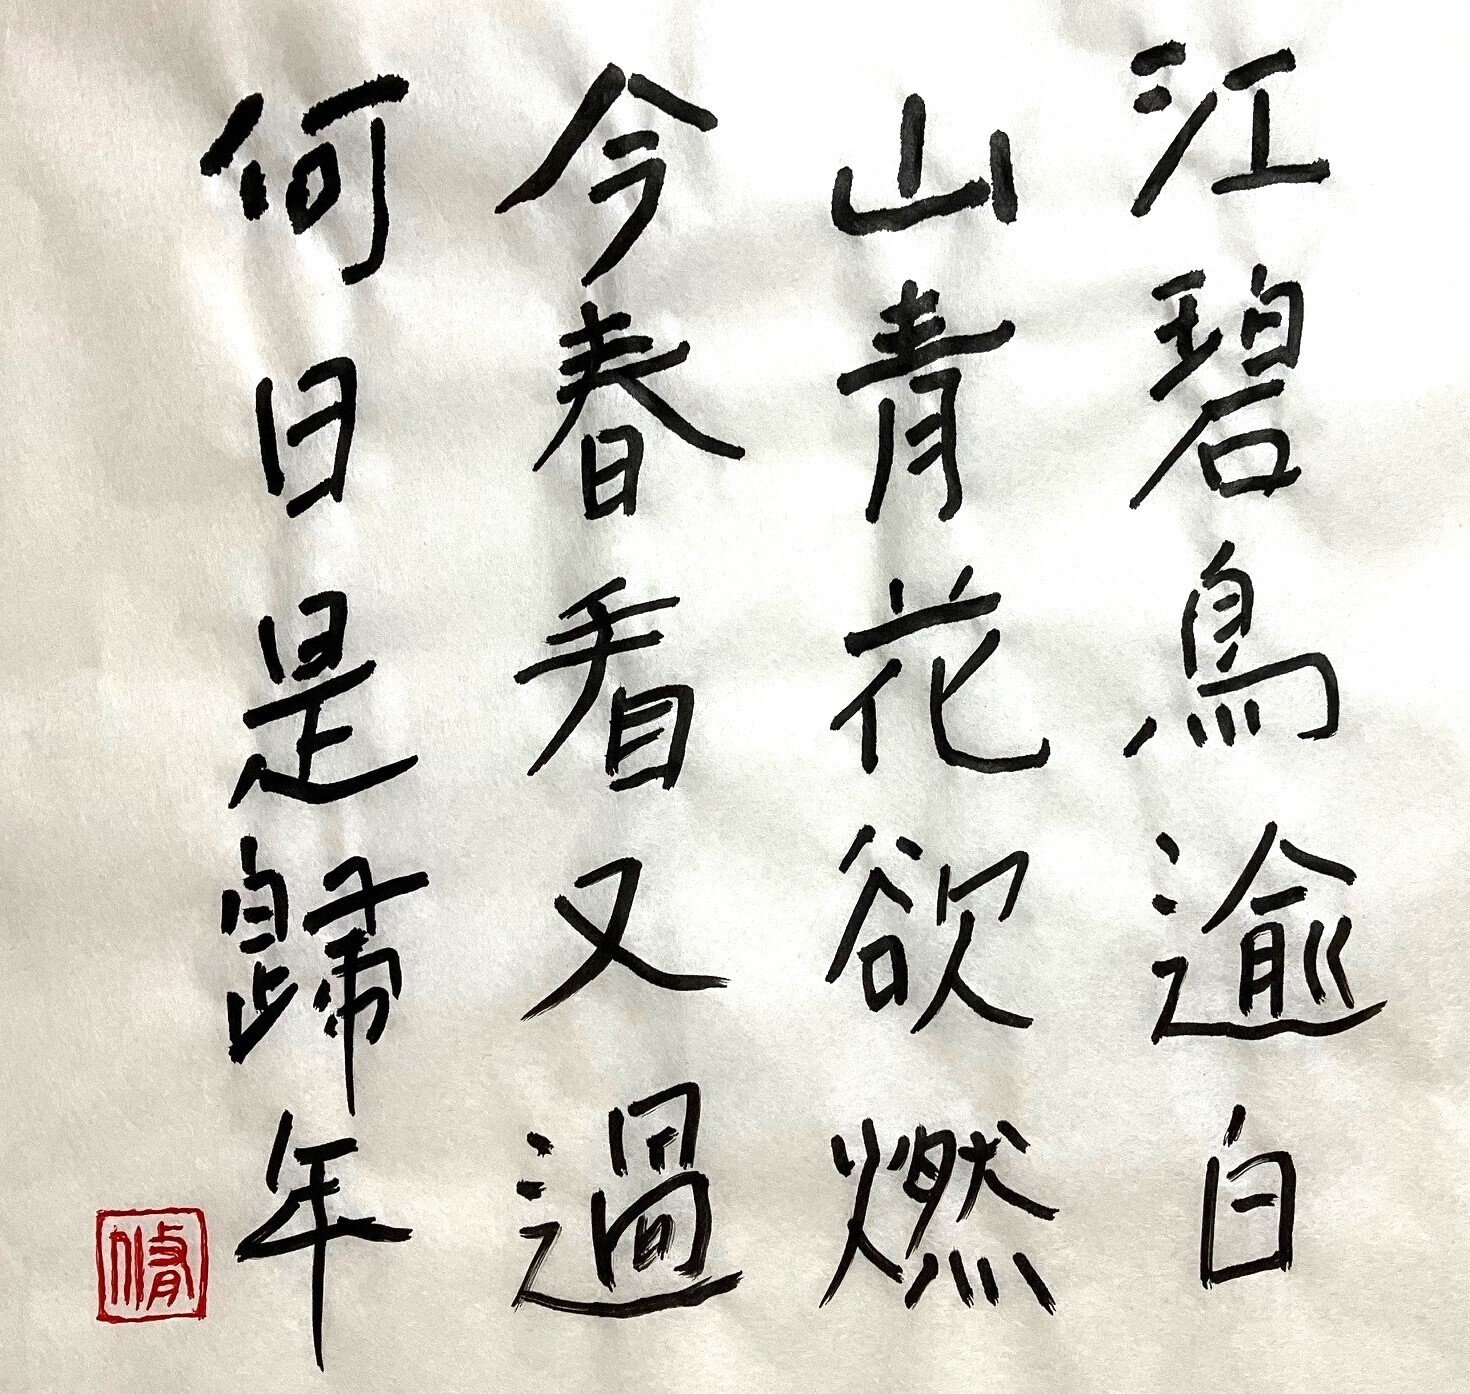 江碧鳥逾白
山青花欲燃
今春看又過
何日是歸年
脩